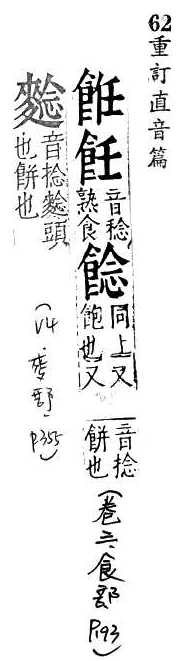 62重訂直音篇
餁飪音稔
熟食
䭃同上又
飽也又
音捻
餅也
(卷三、食部 P.193)
䴴音捻䴴頭
也餅也
(V4.麥部, P355)